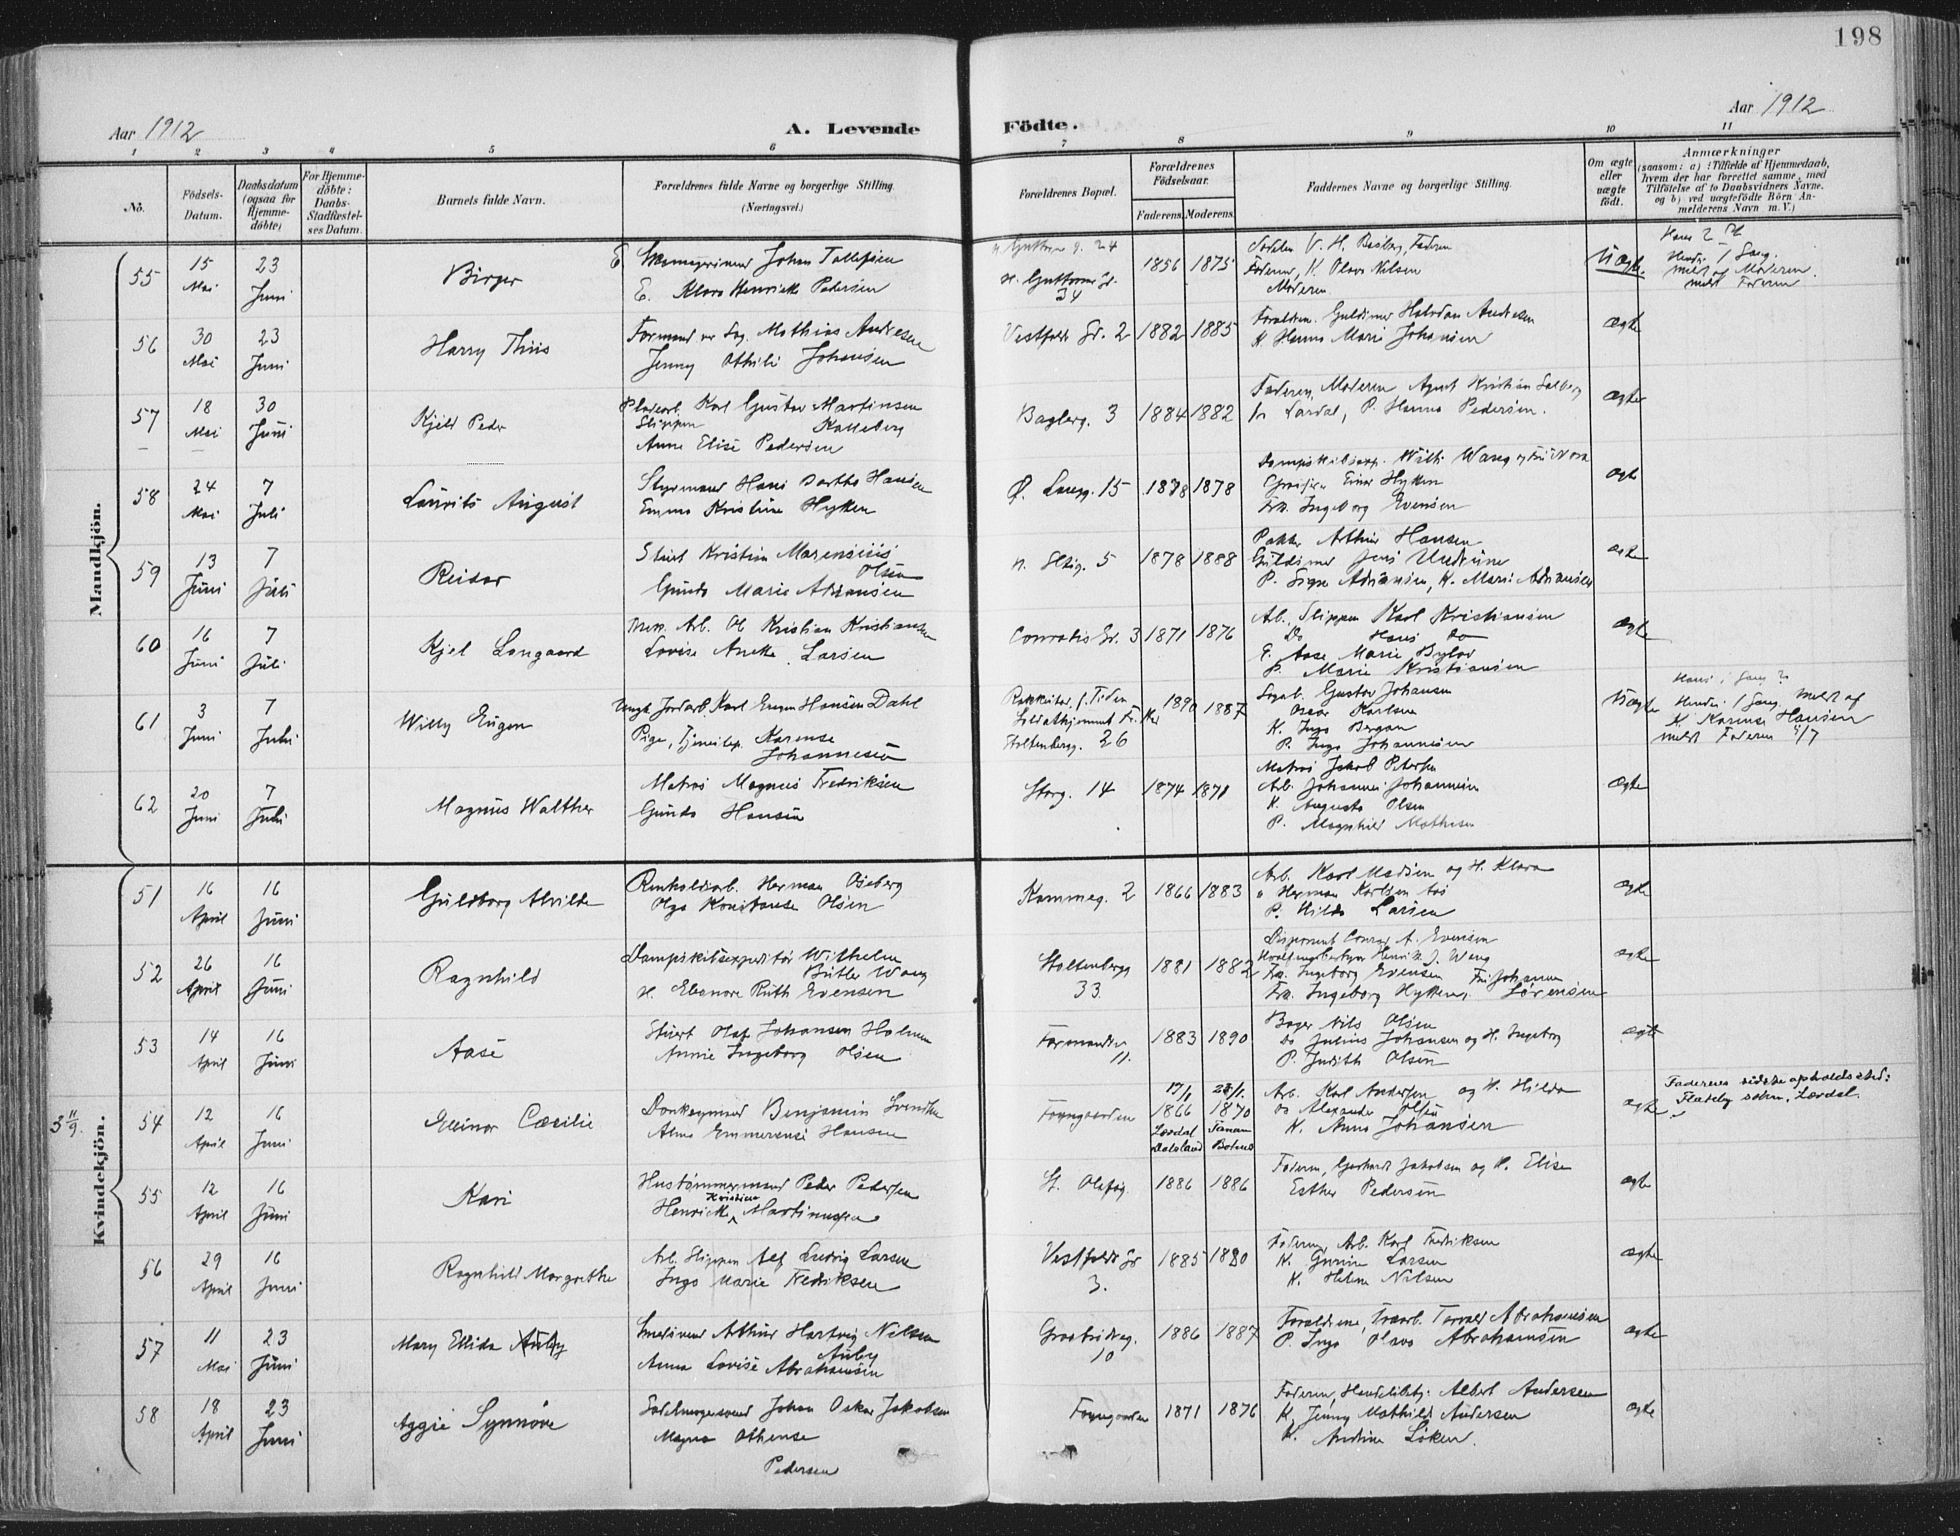 198
Aar 1912
A. Levende
Födte.
Aar 1912
1 2 3 4 5 6 7 8 9 10 11
No.
Födsels-Datum.
Daabsdatum (ogsaa for Hjemme-döbte)
For Hjemme-döbte: Daabs-Stadfæstel-ses Datum.
Barnets fulde Navn.
Forældrenes fulde Navne og borgerlige Stilling.
(Næringsvei.)
Forældrenes Bopæl.
Forældrenes Födselsaar.
Faderens. Moderens.
Faddernes Navne og borgerlige Stilling.
Om ægte eller uægte födt.
Anmærkninger
(saasom: a) i Tilfælde af Hjemmedaab,
hvem der har forrettet samme, med
Tilföielse af to Daabsvidners Navne.
og b) ved uægtefödte Börn An-
melderens Navn m. V.)
Mandkjön.
55 15 Mai 23 Juni Birger
Johan Tollefsen
E. Klara Henrikke Pedersen
24
1856 1875
Faderen, K. Olava Nilsen
Moderen
Uægte.
meldt af Moderen.
meldt Faderen
56 30 Mai 23 Juni Harry Thiis
Mathias Andresen
Jenny Othilie Johansen
Vestfolds Gr. 2 1882 1885
Forældrene, Guldsmed Halvdan Andresen
K. Hanna Marie Johansen
ægte
57 18 Mai 30 Juni Kjell Peder
Pladearb. Karl Gustav Martinsen
Slippen Kalleberg
Anna Elise Pedersen
Baglerg. 3 1884 1882
Faderen, Moderen, Agent Kristian Solberg
fra Lardal, P. Hanna Pedersen.
ægte
58 24 Mai 7 Juli Laurits August
Styrmand Hans Hansen
Emma Kristine Hytten
Ø. Langg. 15 1878 1878
Einar Hytten
Frk. Ingeborg Evensen
ægte
59 13 Juni 7 Juli Reidar
Stuert Kristian Marensius
Olsen
Gunda Marie Adriansen
n. 5 1878 1888
Pakker Arthur Hansen
Guldsmed Jens Undrum
P. Signe Adriansen, K. Marie Adriansen
ægte
60 16 Juni 7 Juli Kjel Langaard
Mek. Arb. Ole Kristian Kristiansen
Lovise Larsen
Conradis Gr. 3 1871 1876
Arb. Slippen Karl Kristiansen
Do Hans Do
E. Aase Marie Bylov
P. Marie Kristiansen
ægte
61 3 Juni 7 Juli Willy Eugen
Ungk. Jordarb. Karl Eugen Hansen Dahl
Pige, Karense
Johannesen
Stoltenbergg. 26
1890 1887
Gustav Johansen
Oscar Karlsen
K. Inga Bergan
P. Inga Johannesen
Uægte
meldt af
K. Karense Hansen
meldt Faderen 1/7
62 20 Juni 7 Juli Magnus Walther
Matros Magnus Fredriksen
Gunda Hansen
Storg. 14 1874 1871
Matros Jakob Petersen
Arb. Johannes Johannesen
K. Augusta Olsen
P. Magnhild Mathisen
ægte
Kvindekjön.
51 16 April 16 Juni Guldborg Alvilde
Renholdsarb. Herman Oseberg
Olga Konstanse Olsen
Kammeg. 2 1866 1883
Arb. Karl Madsen og H. Klara
" Herman Karlsen
P. Hilda Larsen
ægte
52 26 April 16 Juni Ragnhild
Dampskibsexpeditør Wilhelm
Butler Wang
H. Eleonore Ruth Evensen
Stoltenbergg 33. 1881 1882
Disponent Conrad A. Evensen
Henrik J. Wang
Frk. Ingeborg Evensen Fru Johanna
Frk. Ingeborg Hytten, Sørensen
ægte
53 14 April 16 Juni Aase
Stuert Olaf Johansen Holmen
Annie Ingeborg Olsen
Farmandsv 11. 1883 1890
Bager Nils Olsen
Do Julius Johansen og H. Ingeborg
P. Judith Olsen
ægte
54 12 April 16 Juni Elinor Cæcilie
Donkeymand Benjamin Svendsen
Alma Emmerense Hansen
Foyngaarden
17/1 1866 Lærdal 1870 Botne
Arb. Karl Andersen og H. Hilda
Do Alexander Olsen
K. Anna Johansen
ægte
Faderens sidste opholdssted:
Lærdal.
55 12 April 16 Juni Kari
Hustømmermand Peder Pedersen
Kristine
Henrikke Martinussen
St. Olafsg. 1886 1886
Faderen, Gerhardt Jakobsen og H. Elise
Esther Pedersen
ægte
56 29 April 16 Juni Ragnhild Margrethe
Arb. Slippen Alf Ludvig Larsen
Inga Marie Fredriksen
Vestfolds Gr 3. 1885 1880
Faderen, Arb. Karl Fredriksen
K. Gunine Larsen
K. Helma Nilsen
ægte
57 11 Mai 23 Juni Mary Ellida Auby
Smedsvend Arthur Hartvig Nilsen
Auby
Anna Lovise Abrahamsen
Graabrødreg. 10 1886 1887
Forældrene, Træarb. Torvald Abrahamsen
P. Inga Olava Abrahamsen
ægte
58 18 April 23 Juni Aggie Synnøve
Sadelmagersvend Johan Oskar Jakobsen
Magna Othense
Pedersen
Foyngaarden 1871 1876
Faderen, Handelsbetj. Albert Andersen
K. Jenny Mathilde Andersen
K. Andrine Løken.
ægte